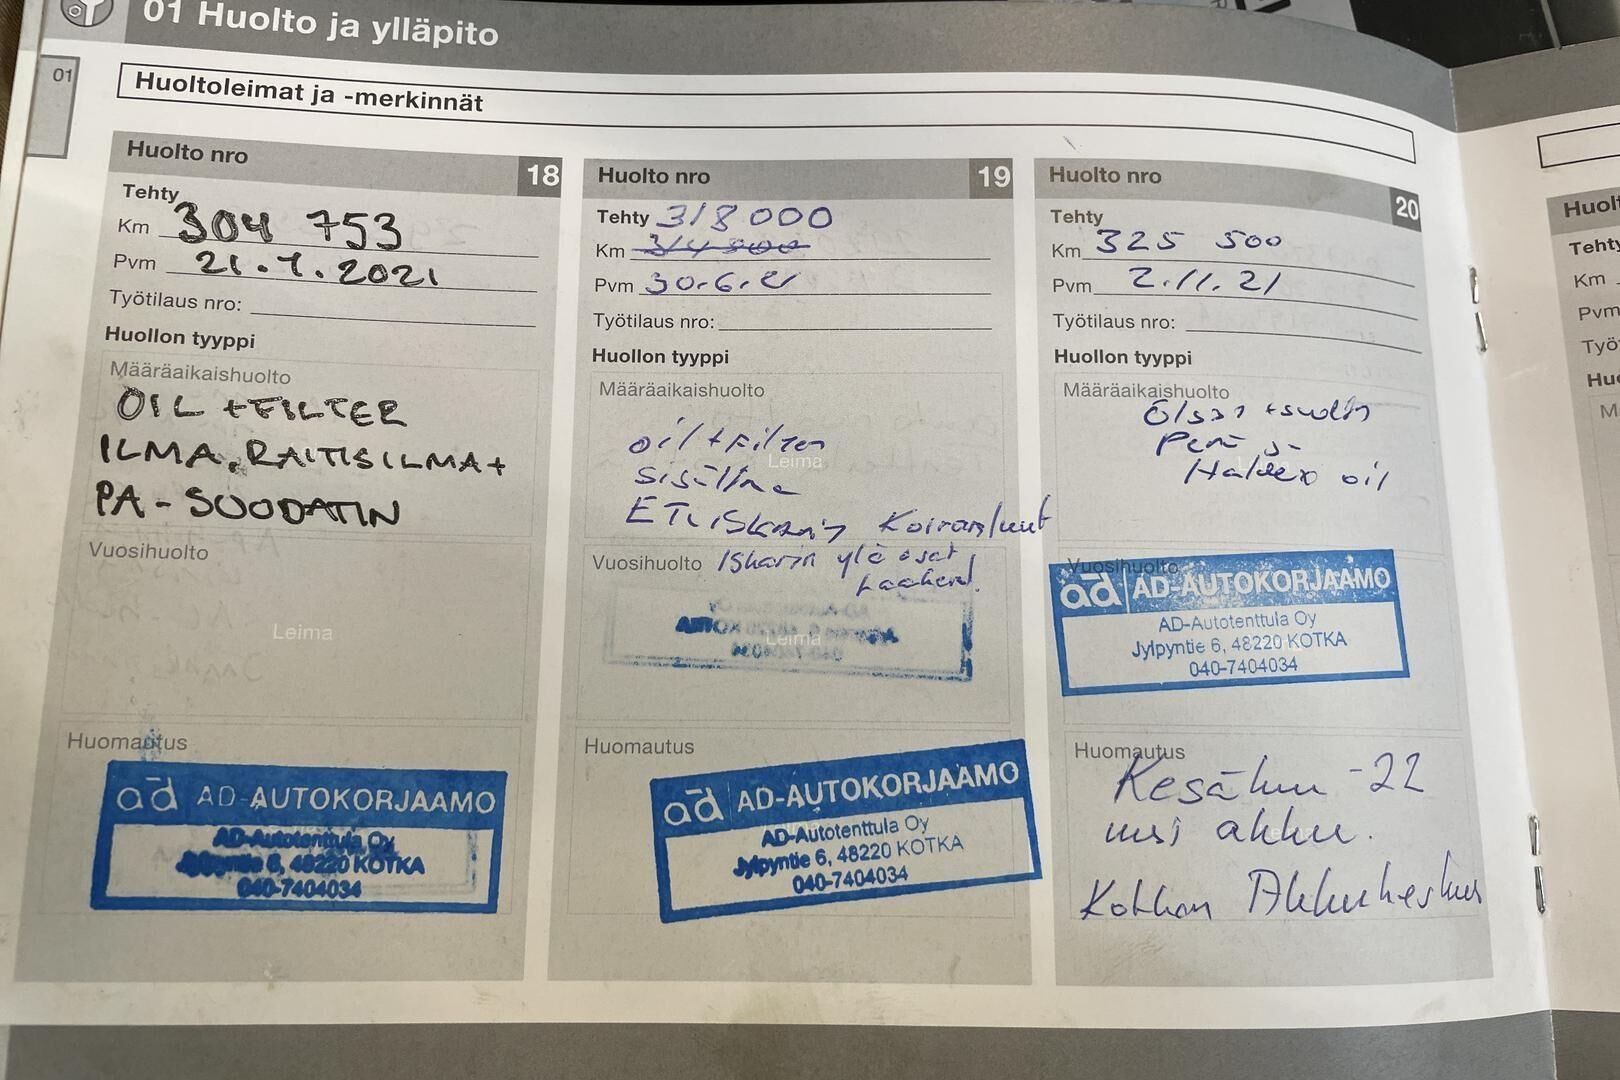 01 Huolto ja ylläpito
01
Huoltoleimat ja -merkinnät
Huolto nro 18
Tehty
Km 304 753
Pvm 21.1.2021
Työtilaus nro:
Huollon tyyppi
Määräaikaishuolto
OIL +FILTER
ILMA, RAITISILMA+
PA-SUODATIN
Vuosihuolto
Leima
Huomautus
ad AD-AUTOKORJAAMO
AD-Autotenttula Oy
Jylpyntie 6, 48220 KOTKA
040-7404034
Huolto nro 19
Tehty 318 000
Km
Pvm 30.6.21
Työtilaus nro:
Huollon tyyppi
Määräaikaishuolto
oil + Filter
Leima
Sisäilma
ETu iskarin Koiranluut
Vuosihuolto Iskarin ylä osat
Laakeri
Leima
Huomautus
ad AD-AUTOKORJAAMO
AD-Autotenttula Oy
Jylpyntie 6, 48220 KOTKA
040-7404034
Huolto nro 20
Tehty
Km 325 500
Pvm 2.11.21
Työtilaus nro:
Huollon tyyppi
Määräaikaishuolto
Perä ja
Haldex oil
Vuosihuolto
ad AD-AUTOKORJAAMO
AD-Autotenttula Oy
Jylpyntie 6, 48220 KOTKA
040-7404034
Huomautus
Kesäkuu -22
uusi akku.
Kotkan Akkukeskus
Tehty
Km
Pvm